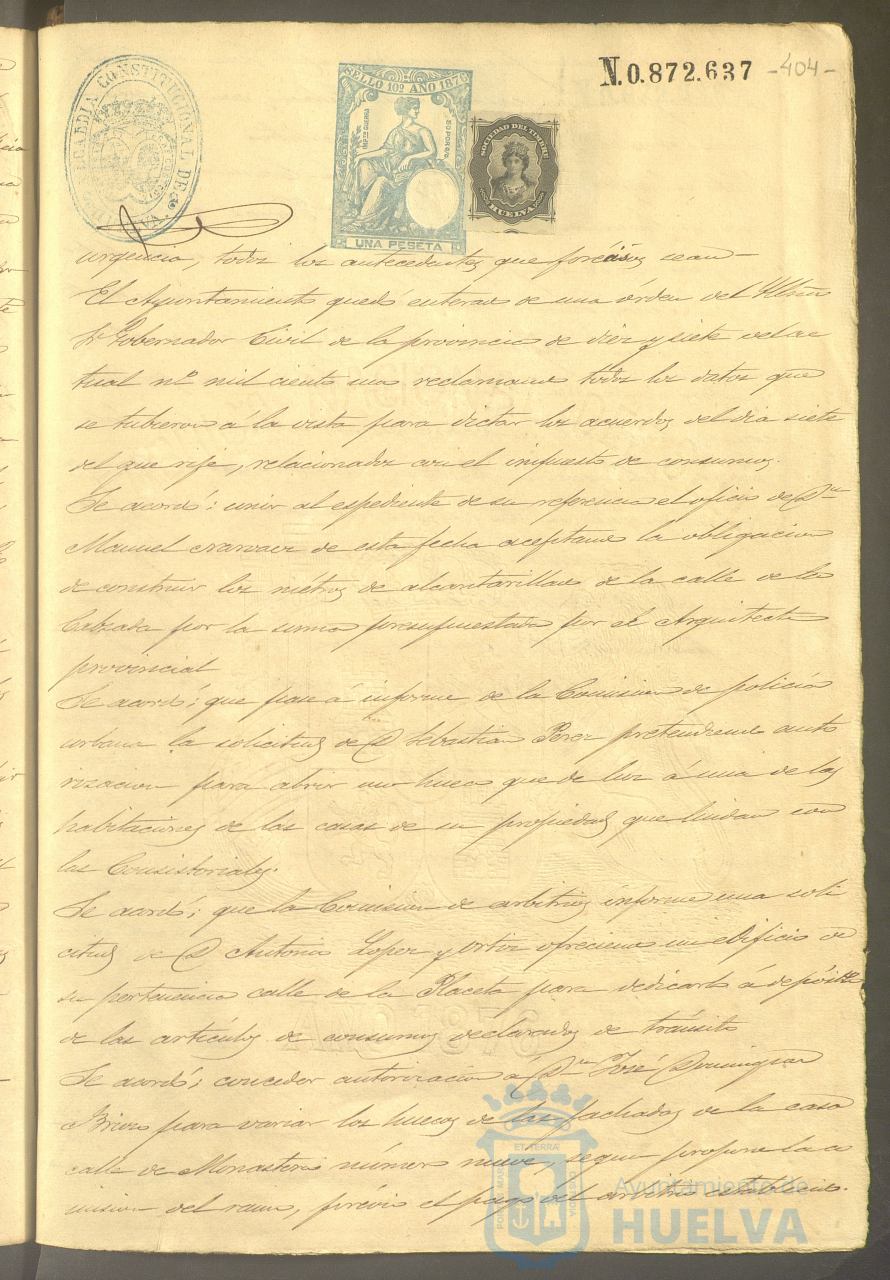 N.0.872.637 -404-
ALCALDIA CONSTITUCIONAL DE HUELVA
SELLO 10º AÑO 1878
IMPTO GUERRA
50 POR %
UNA PESETA
SOCIEDAD DEL TIMBRE
HUELVA
urgencia, todos los antecedentes que sean—
El Ayuntamiento quedó enterado de una órden del Iltmo
Sr Gobernador Civil de la provincia de diez y siete del ac
tual nº mil ciento uno reclamando todos los datos que
se tubieron á la vista para dictar los acuerdos del dia siete
del que rije, relacionados con el impuesto de consumos.
Se acordó: unir al espediente de su referencia el oficio de Dn
Manuel Narvaez de esta fecha aceptando la obligacion
de construir los metros de alcantarillado de la calle de la
Calzada por la suma presupuestada por el Arquitecto
provincial
Se acordó: que pase á informe de la Comision de policia
urbana la solicitud de D Sebastian Perez pretendiendo auto
rizacion para abrir un hueco que de luz á una de las
habitaciones de las casas de su propiedad que lindan con
las Consistoriales.
Se acordó; que la Comision de arbitrios informe una soli
citud de D Antonio Lopez y Ortiz ofreciendo un edificio de
su pertenencia calle de la Placeta para dedicarlo á depósito
de los artículos de consumos declarados de tránsito
Se acordó; conceder autorizacion á Dn José Dominguez
para variar los huecos de las fachadas de la casa
calle de Monasterio número nueve, segun propone la co
mision del ramo, prévio el pago del arbitrio establecido.
ET TERRA
Ayuntamiento de
HUELVA